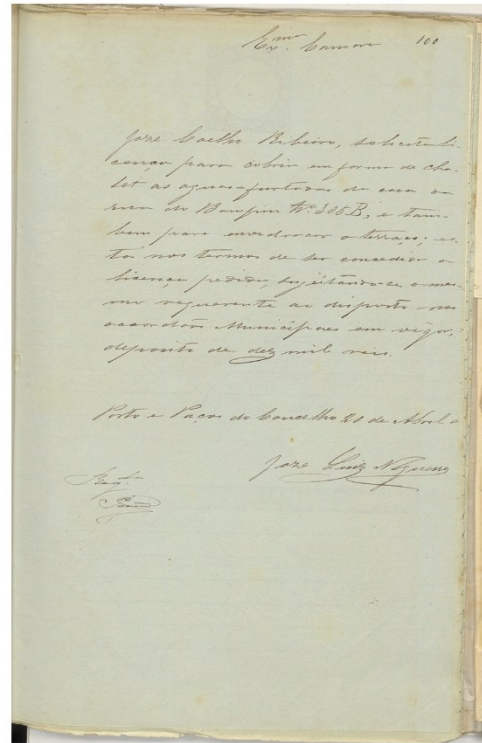 Exma. Camara 100
Joze Coelho Ribeiro, solicita li-
cença para cobrir em forma de cha-
let as aguas-furtadas da casa na
rua do Bomfim Nº. 305 B, e tam-
bem para envidraçar o terraço; es-
tá nos termos de ser concedida a
licença pedida, sujeitando-se o mes-
mo requerente ao disposto nos
accordãos Municipaes em vigor,
deposito de dez mil reis.
Porto e Paços do Concelho 20 de Abril
Joze Luiz